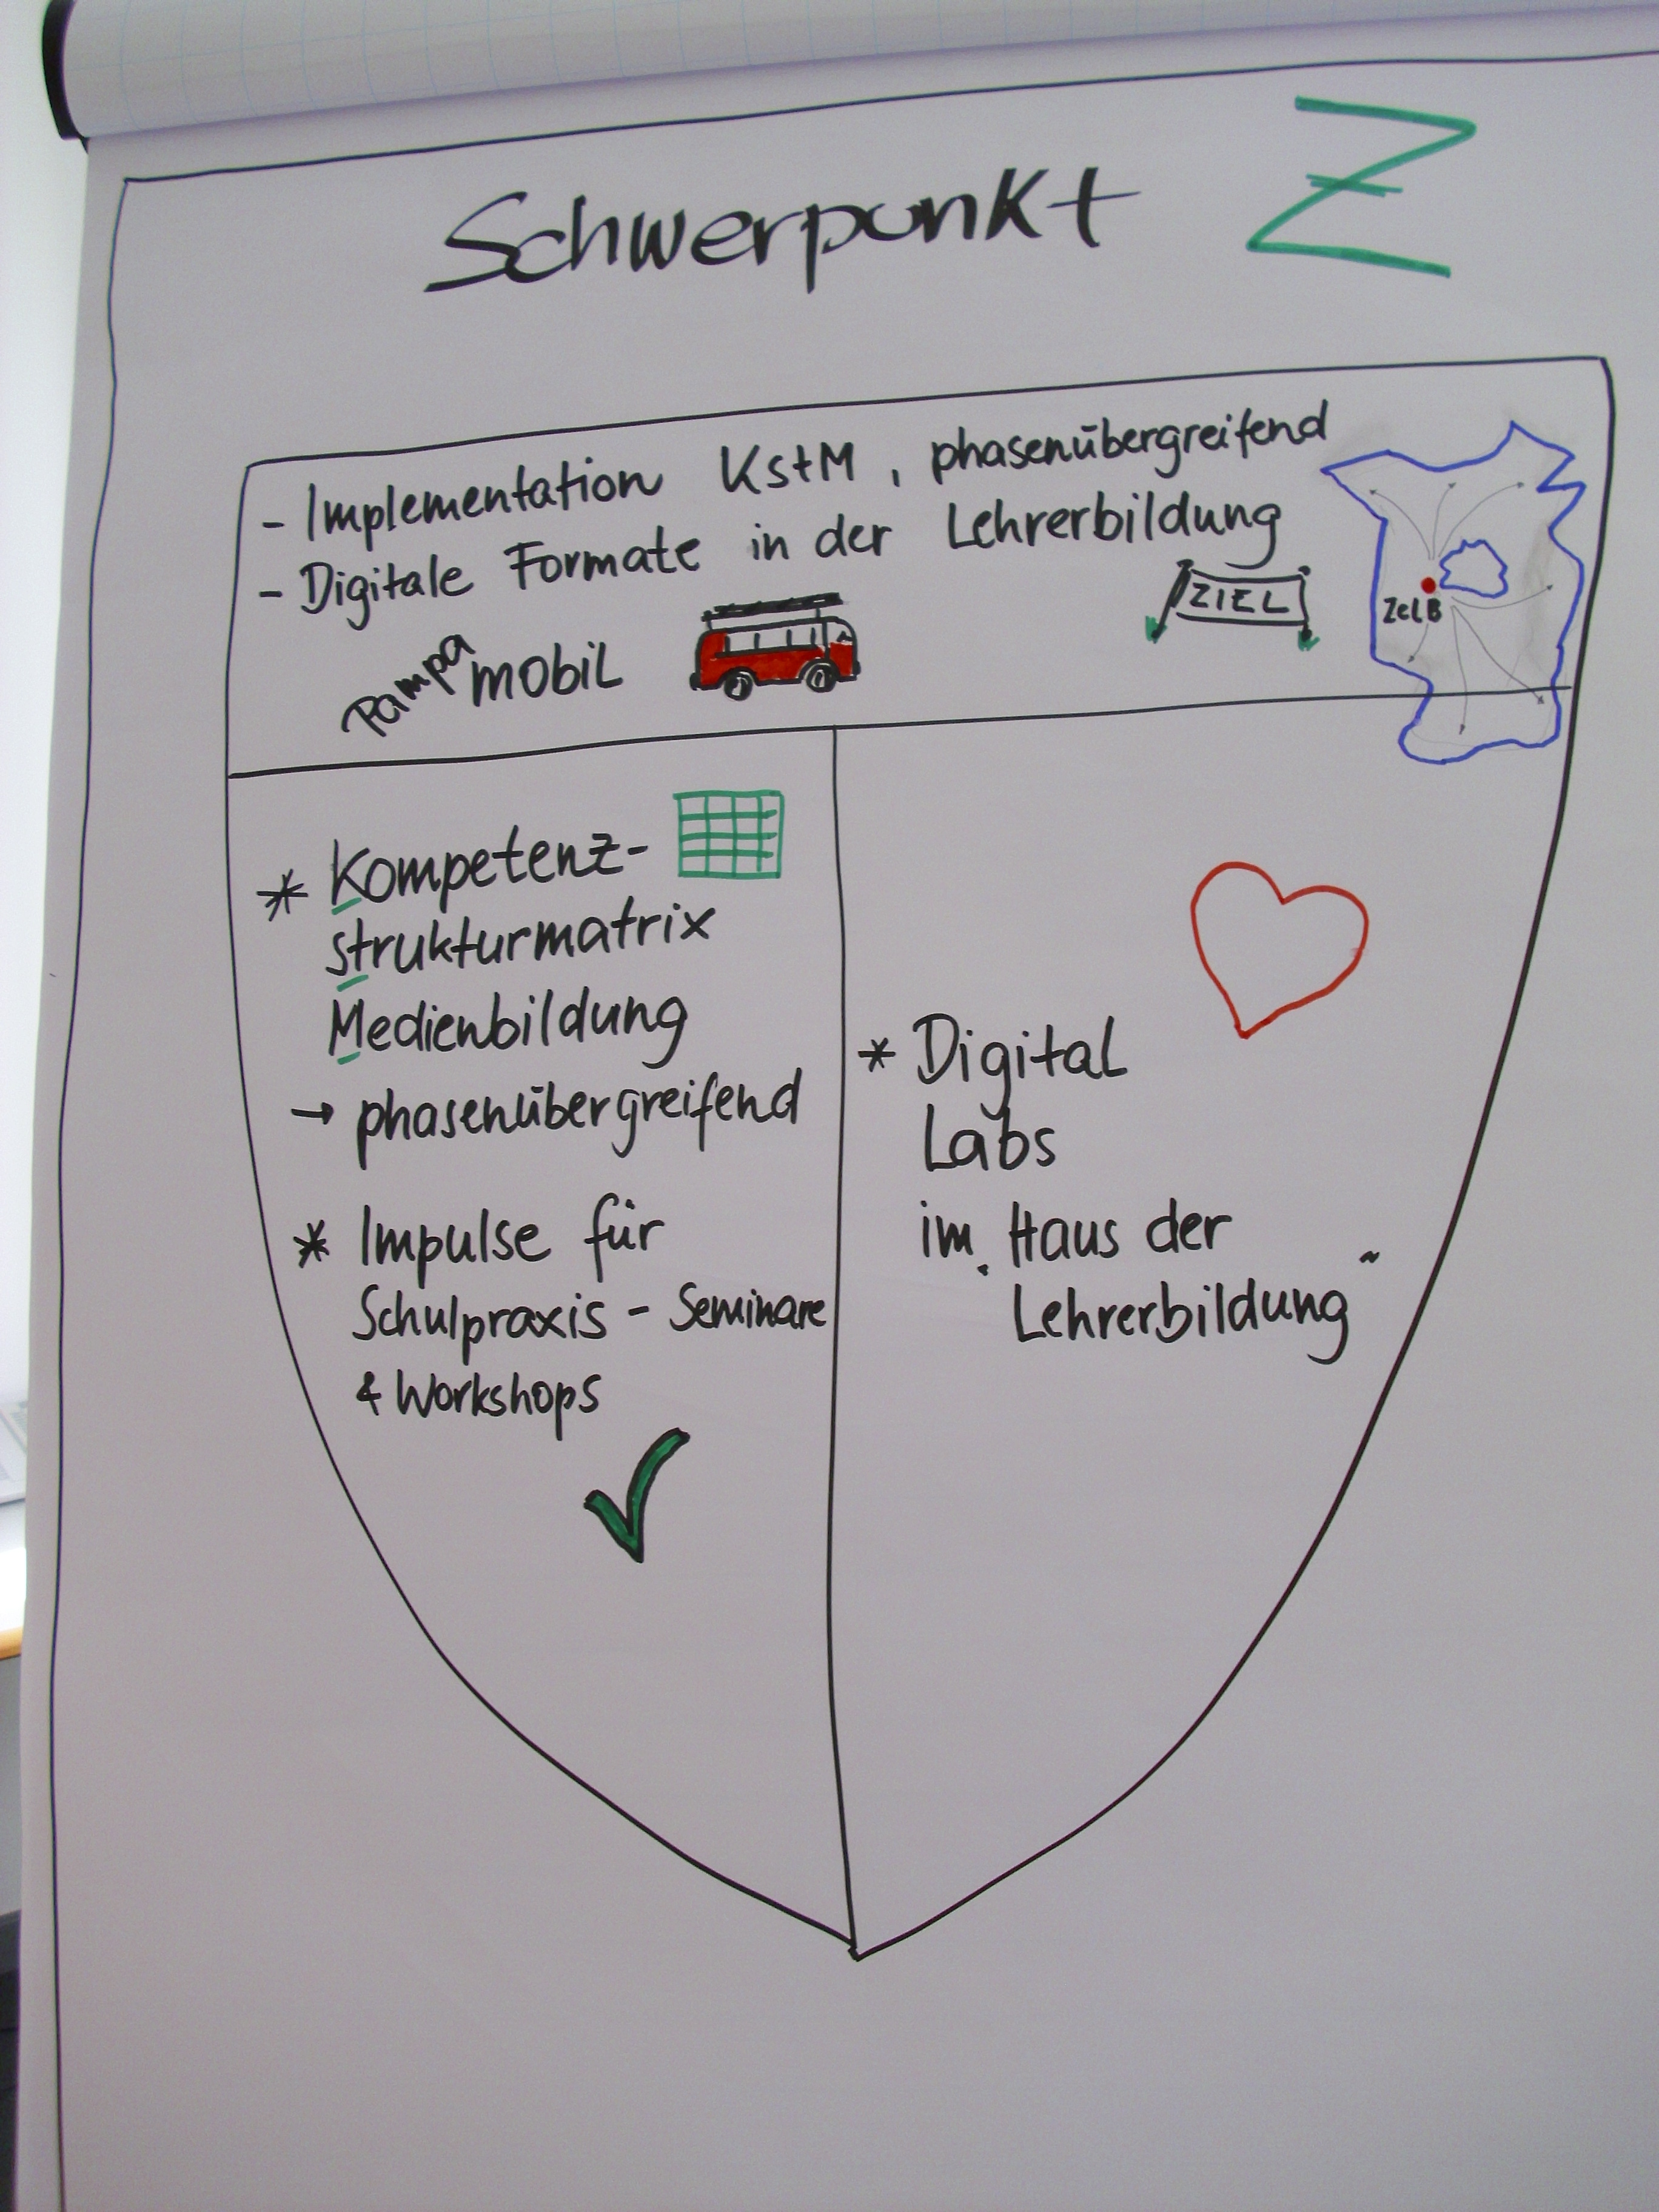 Schwerpunkt Z
- Implementation KstM, phasenübergreifend
- Digitale Formate in der Lehrerbildung
Pampa mobil
ZIEL
ZeLB
* Kompetenz-
strukturmatrix
Medienbildung
→ phasenübergreifend
* Impulse für
Schulpraxis - Seminare
& Workshops
* Digital
Labs
im „Haus der
Lehrerbildung“